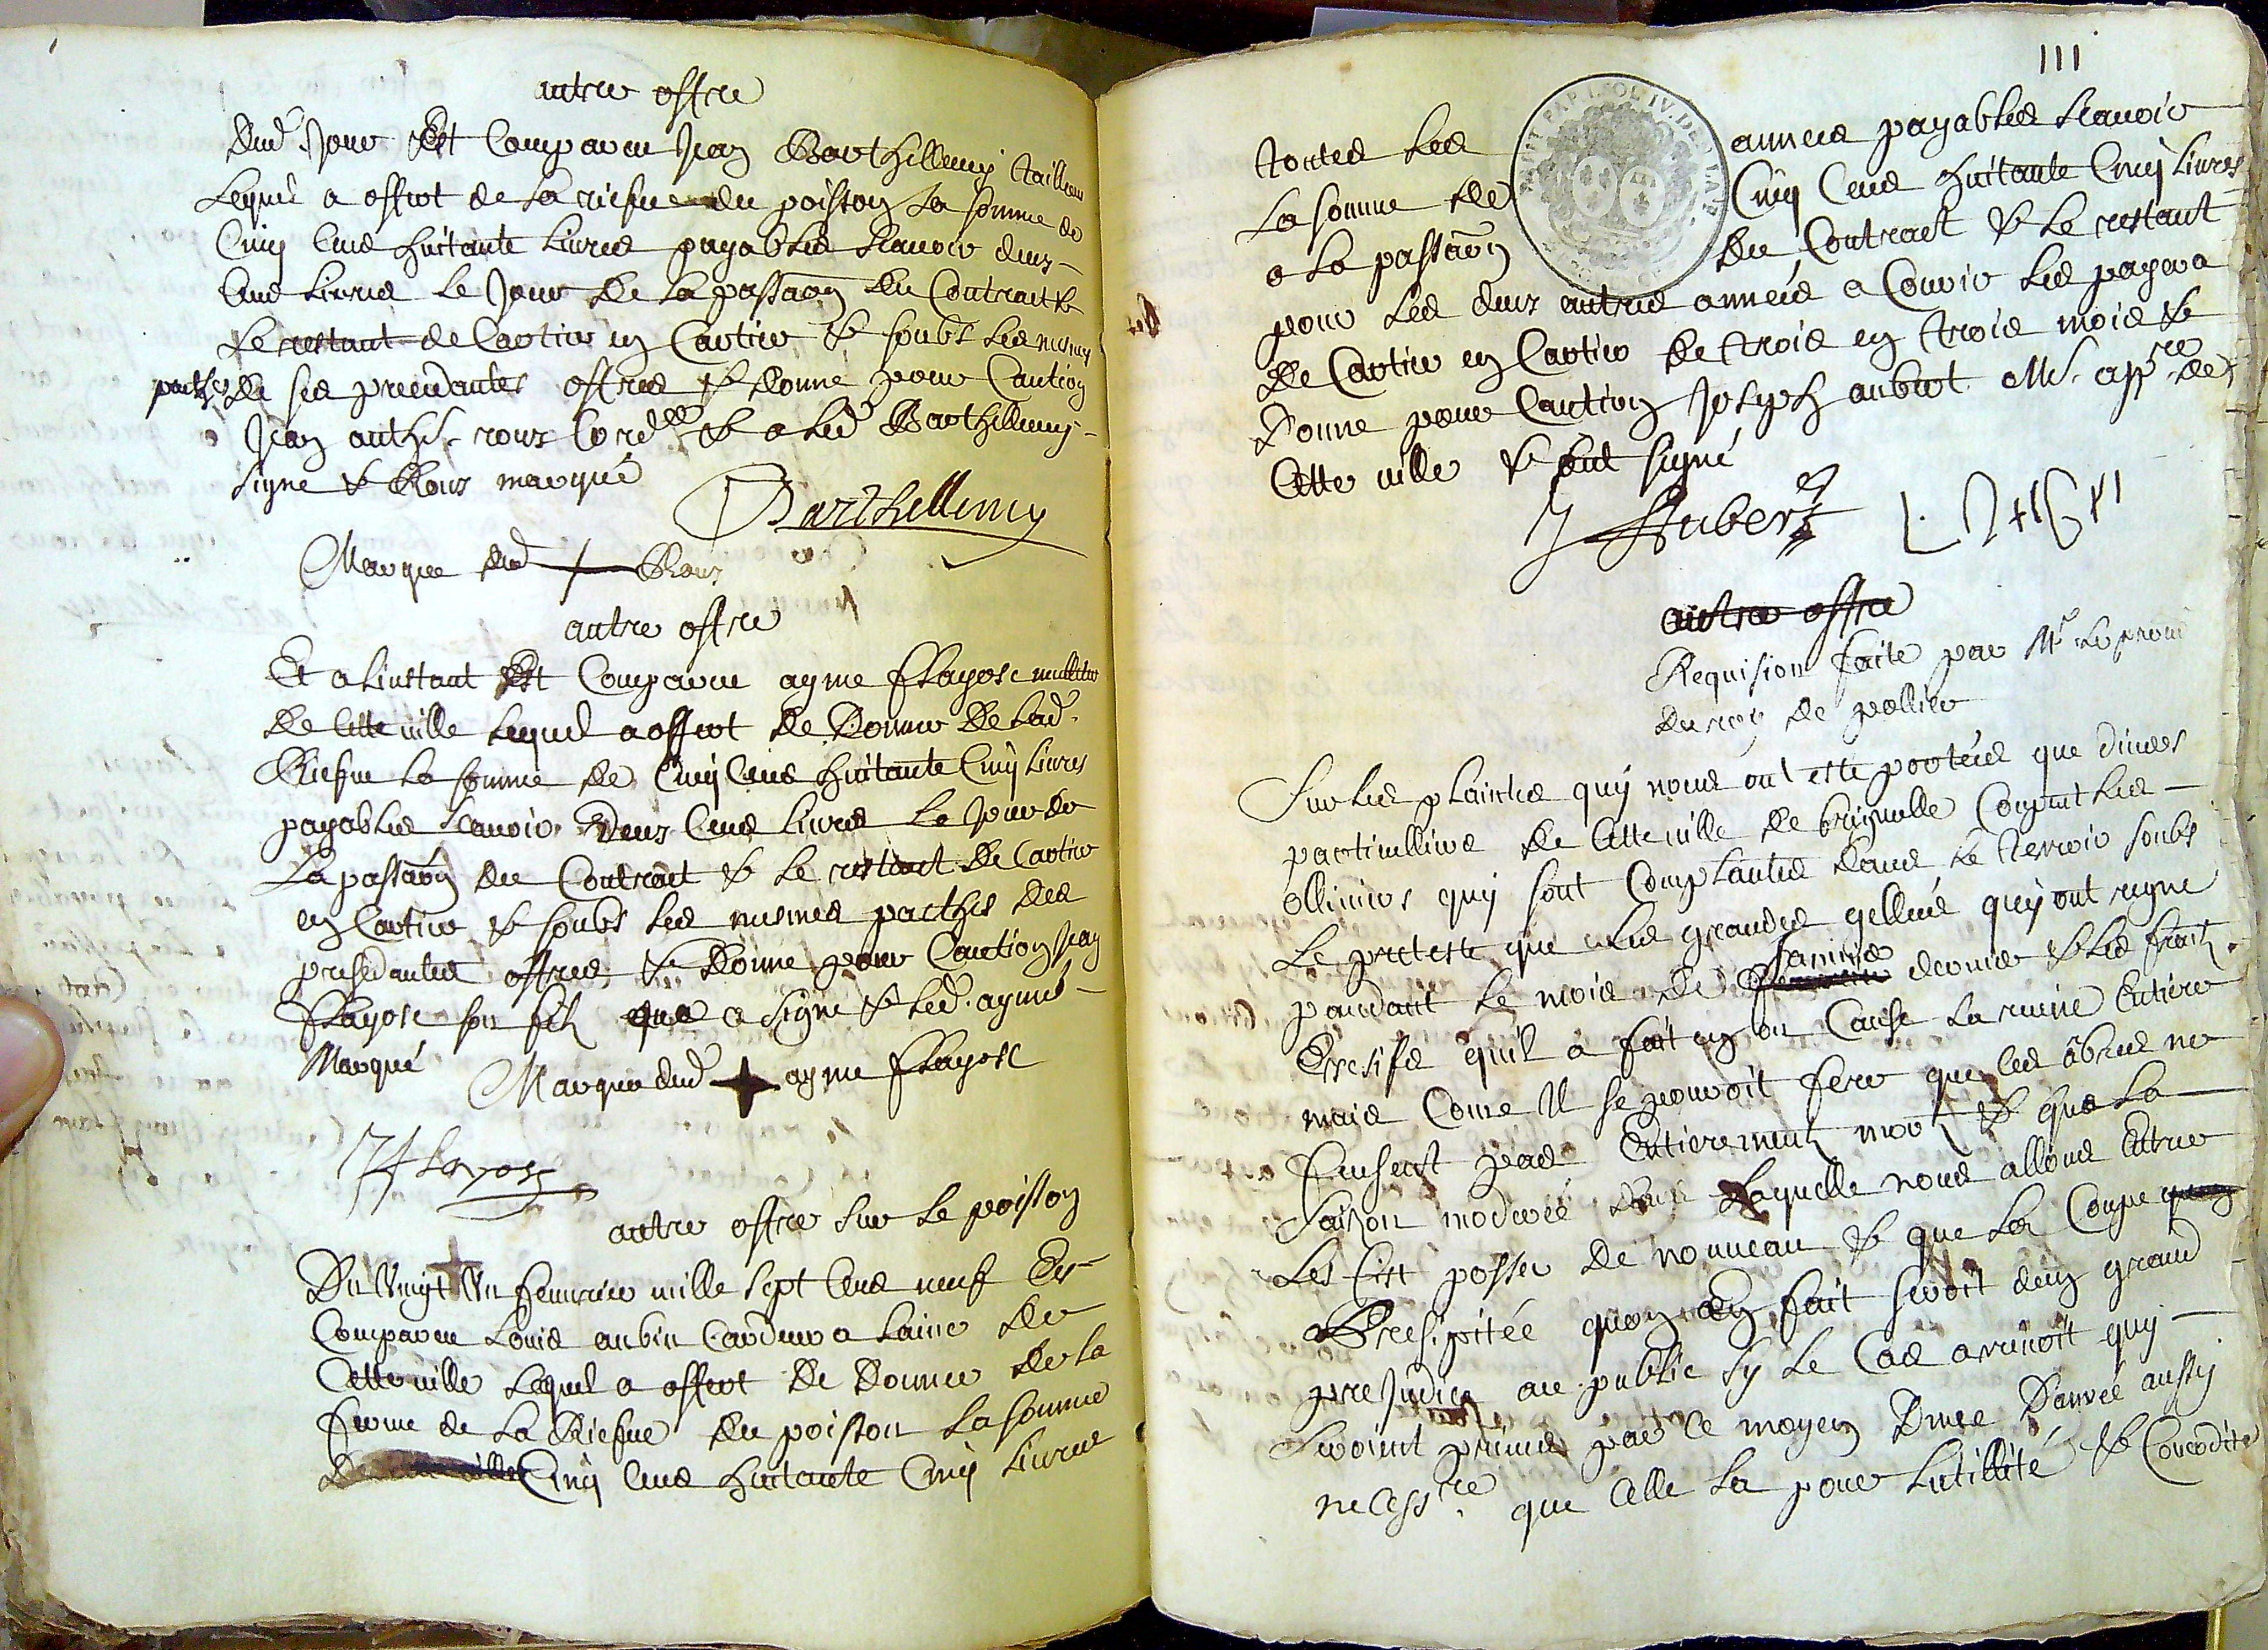 autre offre
Dud. Jour Est Compareu Jean Barthellemy tailleur
Lequel a offert de la riefue du poisson la somme de
Cinq Cens huitante livres payables scauoir deux
Cens livres le Jour de la passaõn du Contract &
le restant de Cartier en Cartier & soubs les mesmes
pacthes de ses precedantes offres & donné pour Caution
Jean anthe. roux Cord.er & a led. Barthellemy
signe & Roux marqué
Barthellemy
Marque dud + Roux
autre offre
Et a linstant Est Compareu ayme flayosc mullatier
de Cette ville lequel a offert de Donner de lad.
Riefue la somme de Cinq Cens huitante Cinq livres
payables scauoir Deux Cens livres le Jour de
La passaõn du Contract & le restant de Cartier
en Cartier & soubs les mesmes pacthes des
presedantes offres & donne pour Caution Jean
flayosc son filz que a signe & led. aymé
Marqué
Marque dud + ayme flayosc
flayosc
autre offre sur le poisson
Du Vingt Un feuurier mille sept Cens neuf Est
Compareu Louis aubin Cardeur a laine de
Cette ville lequel a offert de donner de la
ferme de la Riefue du poisson la somme
De Cinq Cens huitante Cinq livres
111
toutes les années payables scauoir
La somme de Cinq Cens huitante Cinq livres
a la passaõn du Contract & le restant
pour les deux autres années a Courir les payera
de Cartier en Cartier de trois en trois mois &
Donne pour Caution Joseph aubert Me. app.re de
Cette ville & ont signé
J Aubert
autre offre
Requision faite par Mr le procu
du roy de pollice
Sur les plaintes quy nous ont esté portées que diuers
particulliers de Cette ville de brignolle Coupent les
olliuiers quy sont Complantés dans le terroir soubs
Le preteste que les grandes gellées quy ont regné
pandant le mois de Januier dernier & les froitz
Excesifs quil a fait en on Causé la ruine Entiere
mais Come Il se pouuoit fere que les âbres ne
feusent pas Entierement mortz & que la
saison moderée dans laquelle nous allons Entrer
Les fist posser de nouueau & que la Coupe
Presipitée quon en fait seroit d'un grand
preJudice au public sy le Cas arriuoit quy
seroint priués par Ce moyen D'une Danrée aussy
necess.re que Celle la pour Lutillité &